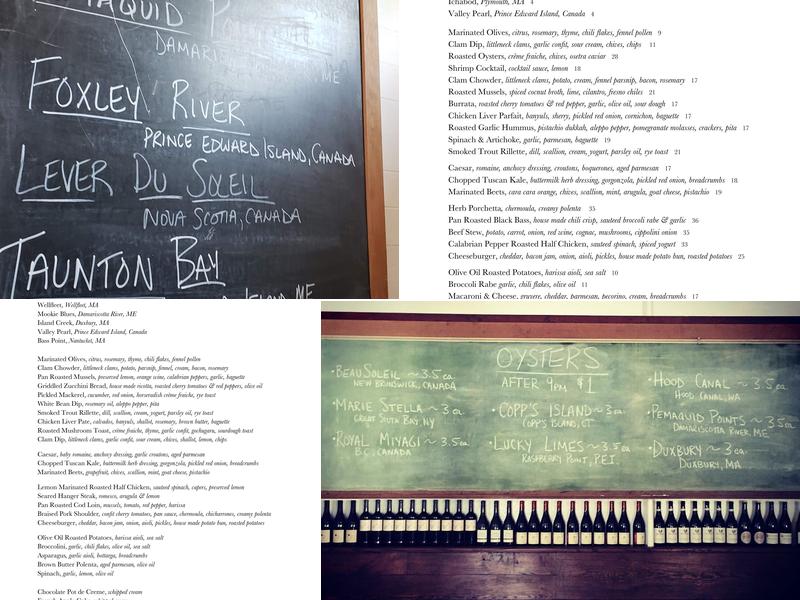 MAQUID P
DAMARI
ME
FOXLEY RIVER
PRINCE EDWARD ISLAND, CANADA
LEVER DU SOLEIL
NOVA SCOTIA, CANADA
TAUNTON BAY
ISLAND ME
Ichabod, Plymouth, MA 4
Valley Pearl, Prince Edward Island, Canada 4
Marinated Olives, citrus, rosemary, thyme, chili flakes, fennel pollen 9
Clam Dip, littleneck clams, garlic confit, sour cream, chives, chips 11
Roasted Oysters, crème fraiche, chives, osetra caviar 28
Shrimp Cocktail, cocktail sauce, lemon 18
Clam Chowder, littleneck clams, potato, cream, fennel parsnip, bacon, rosemary 17
Roasted Mussels, spiced coconut broth, lime, cilantro, fresno chiles 21
Burrata, roasted cherry tomatoes & red pepper, garlic, olive oil, sour dough 17
Chicken Liver Parfait, banyuls, sherry, pickled red onion, cornichon, baguette 17
Roasted Garlic Hummus, pistachio dukkah, aleppo pepper, pomegranate molasses, crackers, pita 17
Spinach & Artichoke, garlic, parmesan, baguette 19
Smoked Trout Rillette, dill, scallion, cream, yogurt, parsley oil, rye toast 21
Caesar, romaine, anchovy dressing, croutons, boquerones, aged parmesan 17
Chopped Tuscan Kale, buttermilk herb dressing, gorgonzola, pickled red onion, breadcrumbs 18
Marinated Beets, cara cara orange, chives, scallion, mint, arugula, goat cheese, pistachio 19
Herb Porchetta, chermoula, creamy polenta 35
Pan Roasted Black Bass, house made chili crisp, sauteed broccoli rabe & garlic 36
Beef Stew, potato, carrot, onion, red wine, cognac, mushrooms, cippolini onion 35
Calabrian Pepper Roasted Half Chicken, sauteed spinach, spiced yogurt 33
Cheeseburger, cheddar, bacon jam, onion, aioli, pickles, house made potato bun, roasted potatoes 25
Olive Oil Roasted Potatoes, harissa aioli, sea salt 10
Broccoli Rabe garlic, chili flakes, olive oil 11
Macaroni & Cheese, gruyere, cheddar, parmesan, pecorino, cream, breadcrumbs 17
Wellfleet, Wellfleet, MA
Mookie Blues, Damariscotta River, ME
Island Creek, Duxbury, MA
Valley Pearl, Prince Edward Island, Canada
Bass Point, Nantucket, MA
Marinated Olives, citrus, rosemary, thyme, chili flakes, fennel pollen
Clam Chowder, littleneck clams, potato, parsnip, fennel, cream, bacon, rosemary
Pan Roasted Mussels, preserved lemon, orange wine, calabrian peppers, garlic, baguette
Griddled Zucchini Bread, house made ricotta, roasted cherry tomatoes & red peppers, olive oil
Pickled Mackerel, cucumber, red onion, horseradish crème fraiche, rye toast
White Bean Dip, rosemary oil, aleppo pepper, pita
Smoked Trout Rillette, dill, scallion, cream, yogurt, parsley oil, rye toast
Chicken Liver Pate, calvados, banyulls, shallot, rosemary, brown butter, baguette
Roasted Mushroom Toast, crème fraiche, thyme, garlic confit, gochugaru, sourdough toast
Clam Dip, littleneck clams, garlic confit, sour cream, chives, shallot, lemon, chips
Caesar, baby romaine, anchovy dressing, garlic croutons, aged parmesan
Chopped Tuscan Kale, buttermilk herb dressing, gorgonzola, pickled red onion, breadcrumbs
Marinated Beets, grapefruit, chives, scallion, mint, goat cheese, pistachio
Lemon Marinated Roasted Half Chicken, sauteed spinach, capers, preserved lemon
Seared Hanger Steak, romesco, arugula & lemon
Pan Roasted Cod Loin, mussels, tomato, red pepper, harissa
Braised Pork Shoulder, confit cherry tomatoes, pan sauce, chermoula, chicharrones, creamy polenta
Cheeseburger, cheddar, bacon jam, onion, aioli, pickles, house made potato bun, roasted potatoes
Olive Oil Roasted Potatoes, harissa aioli, sea salt
Broccolini, garlic, chili flakes, olive oil, sea salt
Asparagus, garlic aioli, bottarga, breadcrumbs
Brown Butter Polenta, aged parmesan, olive oil
Spinach, garlic, lemon, olive oil
Chocolate Pot de Creme, whipped cream
OYSTERS
AFTER 9PM $1
•BEAUSOLEIL ~3.5 ea.
NEW BRUNSWICK, CANADA
•MARIE STELLA ~3 ea.
GREAT SOUTH BAY NY
•ROYAL MIYAGI ~3.5 ea.
B.C. CANADA
•COPP'S ISLAND ~3 ea.
COPP'S ISLAND, CT
•LUCKY LIMES ~3.5 ea.
RASPBERRY POINT, PEI
•HOOD CANAL ~3.5 ea.
HOOD CANAL, WA
•PEMAQUID POINTS ~3.5 ea.
DAMARISCOTTA RIVER, ME
•DUXBURY ~3 ea.
DUXBURY, MA